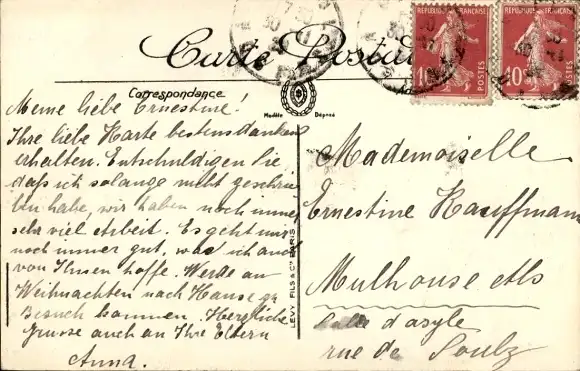 Carte Postale
Correspondance
Modèle Déposé
RÉPUBLIQUE FRANÇAISE
10
POSTES
RÉPUBLIQUE FRANÇAISE
10
POSTES
Meine liebe Ernestine!
Ihre liebe Karte bestens dankend
erhalten. Entschuldigen Sie
daß ich solange nicht geschrie
ben habe, wir haben noch immer
sehr viel Arbeit. Es geht uns
noch immer gut, was ich auch
von Ihnen hoffe. Werde an
Weihnachten nach Hause zu
Besuch kommen. Herzliche
Grüsse auch an Ihre Eltern
Anna.
LEVY FILS & Cie PARIS
Mademoiselle
Ernestine Kauffmann
Mulhouse Als
Salle d'asyle
rue de Soultz